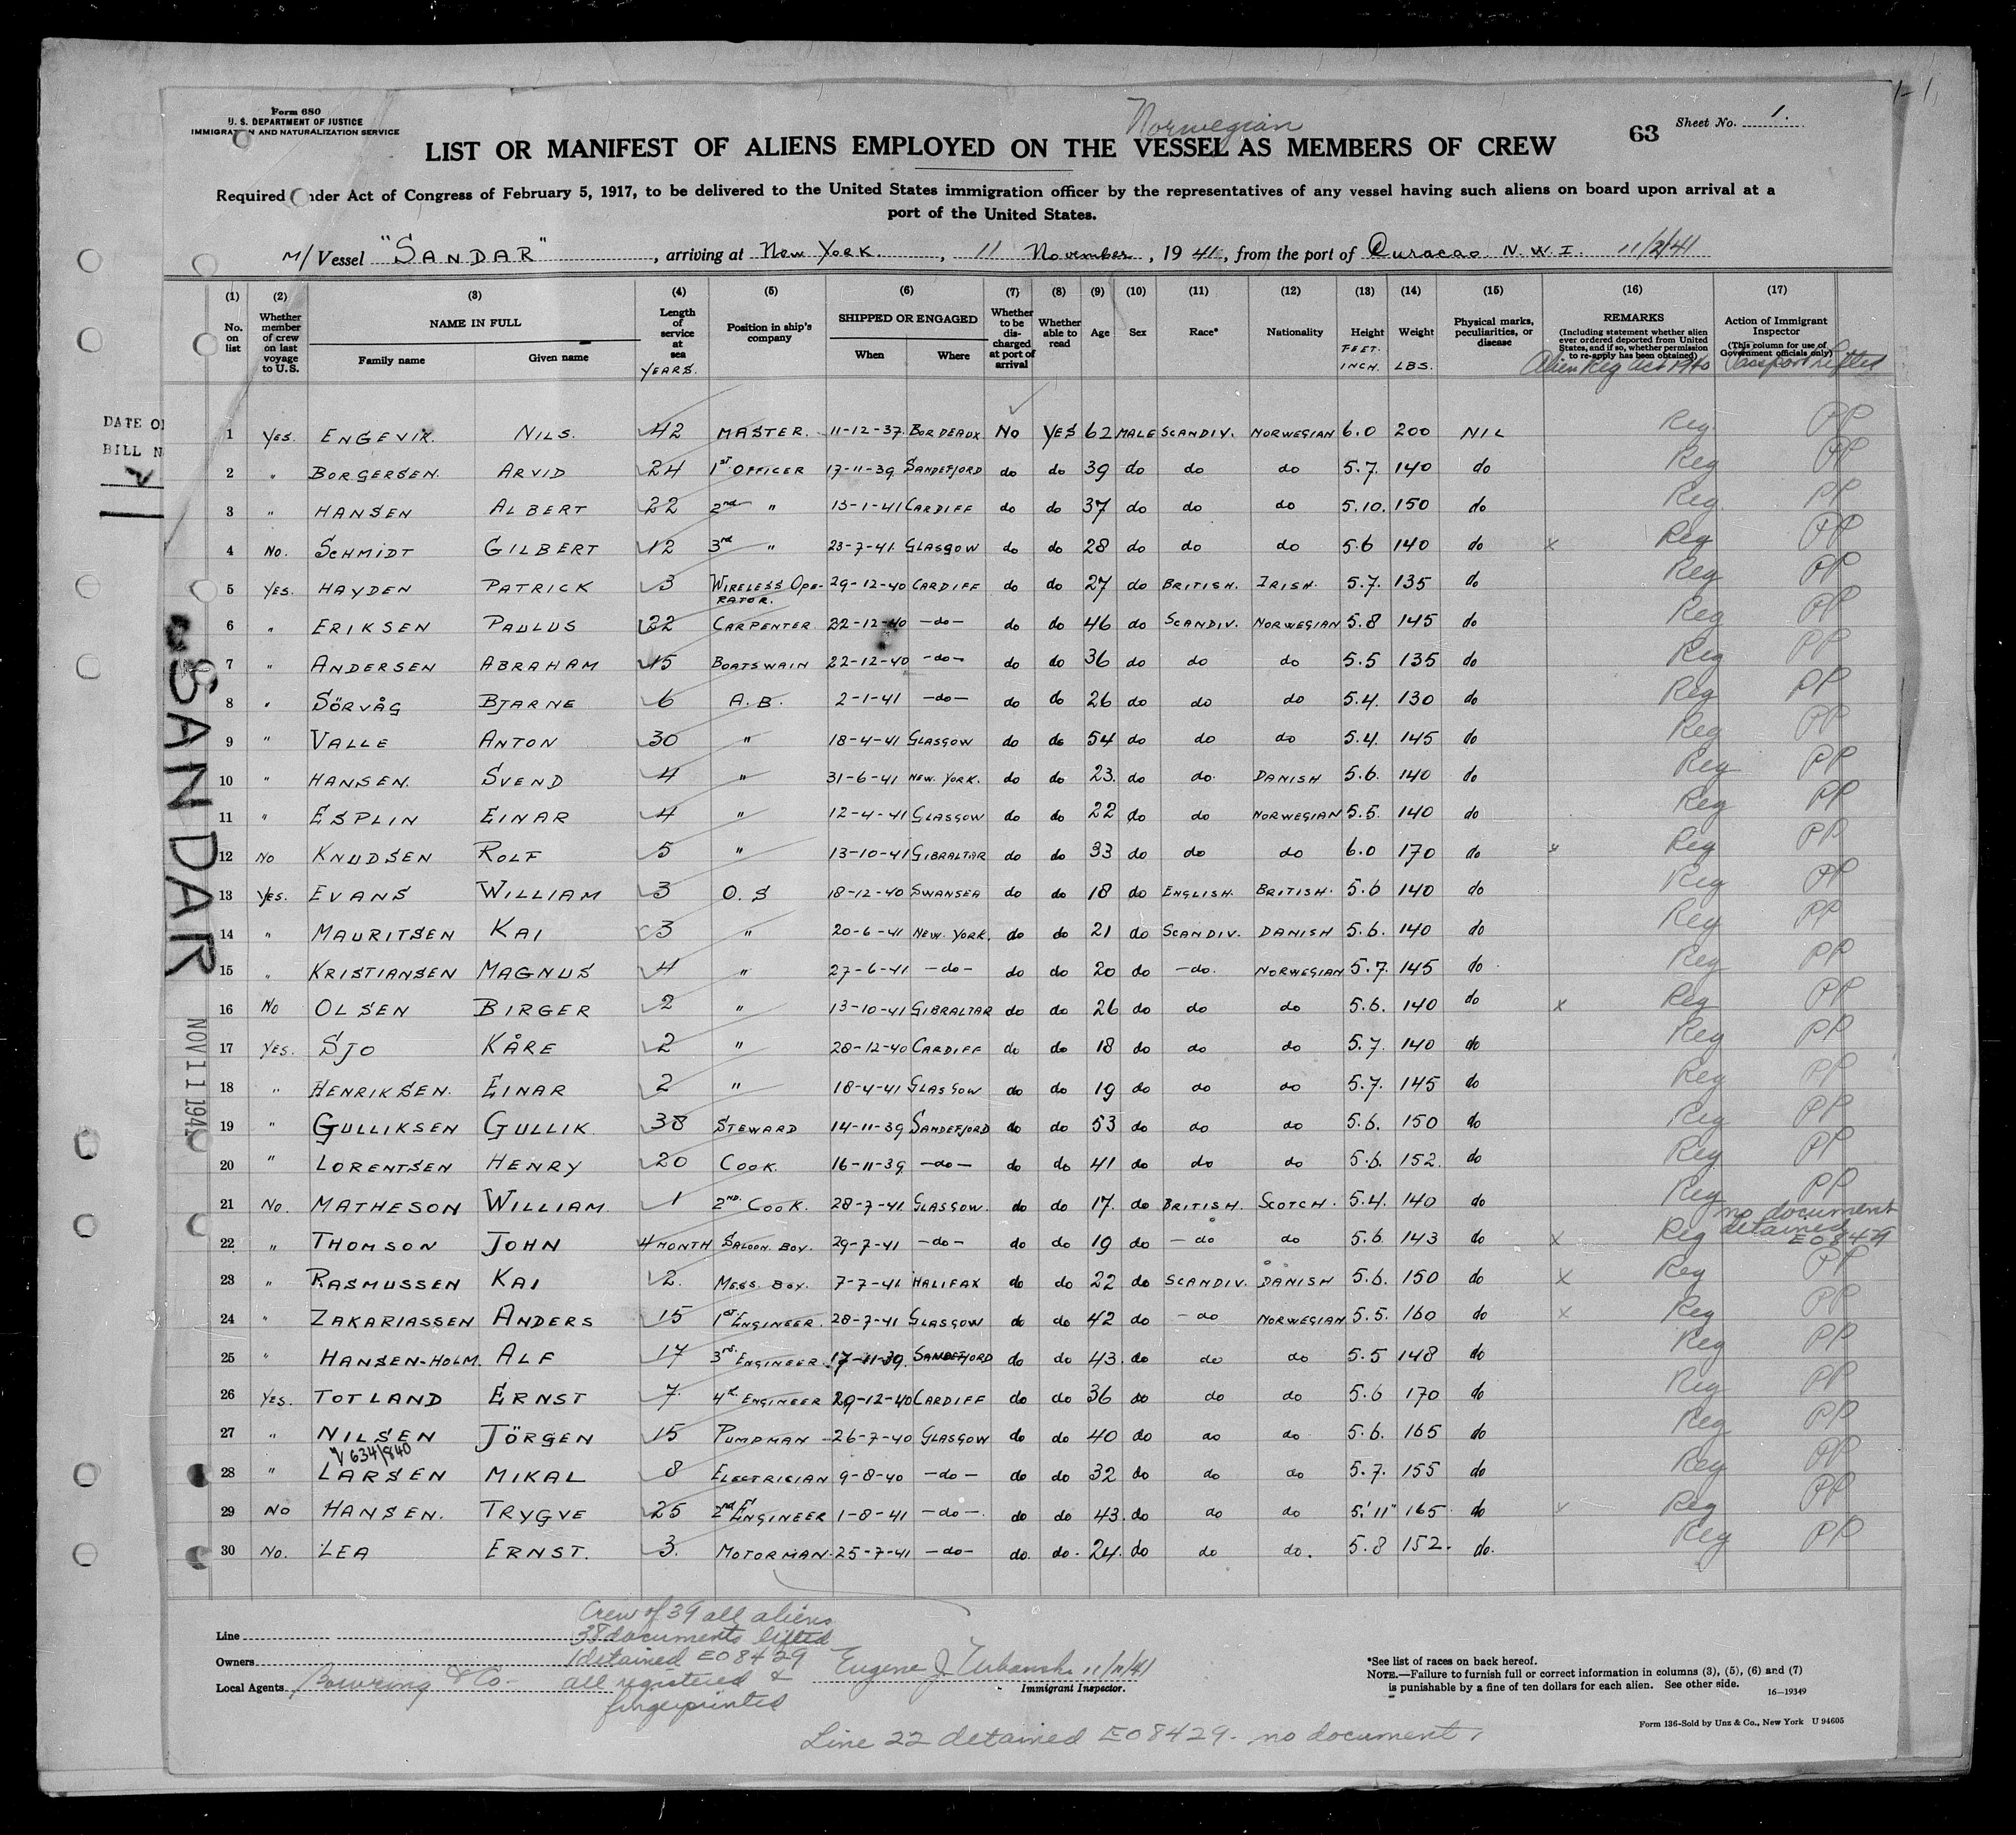 1-1
Form 680
U. S. DEPARTMENT OF JUSTICE
IMMIGRATION AND NATURALIZATION SERVICE
Norwegian
63 Sheet No. 1.
LIST OR MANIFEST OF ALIENS EMPLOYED ON THE VESSEL AS MEMBERS OF CREW
Required under Act of Congress of February 5, 1917, to be delivered to the United States immigration officer by the representatives of any vessel having such aliens on board upon arrival at a
port of the United States.
M/Vessel "SANDAR", arriving at New York., 11 November, 1941, from the port of Curacao N.W.I. 11/2/41
(1) No. on list
(2) Whether member of crew on last voyage to U.S.
(3) NAME IN FULL Family name Given name
(4) Length of service at sea YEARS.
(5) Position in ship's company
(6) SHIPPED OR ENGAGED When Where
(7) Whether to be discharged at port of arrival
(8) Whether able to read
(9) Age
(10) Sex
(11) Race*
(12) Nationality
(13) Height FEET. INCH.
(14) Weight LBS.
(15) Physical marks, peculiarities, or disease
(16) REMARKS (Including statement whether alien ever ordered deported from United States, and if so, whether permission to re-apply has been obtained) Alien Reg Act 1940
(17) Action of Immigrant Inspector (This column for use of Government officials only) Passport Lifted
DATE OF
BILL N
SANDAR
NOV 11 1941
1 Yes. ENGEVIK. NILS. 42 MASTER. 11-12-37. BORDEAUX No YES 62 MALE SCANDIV. NORWEGIAN 6.0 200 NIL Reg PP
2 " BORGERSEN. ARVID 24 1st OFFICER 17-11-39 SANDEFJORD do do 39 do do do 5.7. 140 do Reg PP
3 " HANSEN ALBERT 22 2nd " 13-1-41 CARDIFF do do 37 do do do 5.10. 150 do Reg. PP
4 No. SCHMIDT GILBERT 12 3rd " 23-7-41. GLASGOW do do 28 do do do 5.6 140 do x Reg PP
5 YES. HAYDEN PATRICK 3 WIRELESS OPERATOR. 29-12-40 CARDIFF do do 27 do BRITISH. IRISH. 5.7. 135 do Reg PP
6 " ERIKSEN PAULUS 22 CARPENTER 22-12-40 -do- do do 46 do SCANDIV. NORWEGIAN 5.8 145 do Reg PP
7 " ANDERSEN ABRAHAM 15 BOATSWAIN 22-12-40 -do- do do 36 do do do 5.5 135 do Reg PP
8 " SÖRVÅG BJARNE 6 A.B. 2-1-41 -do- do do 26 do do do 5.4. 130 do Reg PP
9 " VALLE ANTON 30 " 18-4-41 GLASGOW do do 54 do do do 5.4. 145 do Reg PP
10 " HANSEN. SVEND 4 " 31-6-41 NEW. YORK. do do 23. do do DANISH 5.6. 140 do Reg PP
11 " ESPLIN EINAR 4 " 12-4-41 GLASGOW do do 22 do do NORWEGIAN 5.5. 140 do Reg PP
12 No KNUDSEN ROLF 5 " 13-10-41 GIBRALTAR do do 33 do do do 6.0 170 do x Reg PP
13 Yes. EVANS WILLIAM 3 O.S 18-12-40 SWANSEA do do 18 do ENGLISH. BRITISH. 5.6 140 do Reg PP
14 " MAURITSEN KAI 3 " 20-6-41 NEW. YORK. do do 21 do SCANDIV. DANISH 5.6. 140 do Reg PP
15 " KRISTIANSEN MAGNUS 4 " 27-6-41 -do- do do 20 do -do. NORWEGIAN 5.7. 145 do Reg PP
16 No OLSEN BIRGER 2 " 13-10-41 GIBRALTAR do do 26 do do do 5.6. 140 do x Reg PP
17 YES. SJO KÅRE 2 " 28-12-40 CARDIFF do do 18 do do do 5.7. 140 do Reg PP
18 " HENRIKSEN. EINAR 2 " 18-4-41 GLASGOW do do 19 do do do 5.7. 145 do Reg PP
19 " GULLIKSEN GULLIK 38 STEWARD 14-11-39 SANDEFJORD do do 53 do do do 5.6. 150 do Reg PP
20 " LORENTSEN HENRY 20 COOK 16-11-39 -do- do do 41 do do do 5.6. 152. do Reg PP
21 No. MATHESON WILLIAM. 1 2nd. COOK. 28-7-41 GLASGOW. do do 17. do BRITISH. SCOTCH. 5.4. 140 do Reg PP
22 " THOMSON JOHN 4 MONTH SALOON BOY. 29-7-41 -do- do do 19 do -do do 5.6 143 do x Reg no document detained E08429
23 " RASMUSSEN KAI 2. MESS. BOY. 7-7-41 HALIFAX do do 22 do SCANDIV. DANISH 5.6. 150 do x Reg PP
24 " ZAKARIASSEN ANDERS 15 1st ENGINEER. 28-7-41 GLASGOW do do 42 do -do NORWEGIAN 5.5. 160 do x Reg PP
25 " HANSEN-HOLM. ALF 17 3rd. ENGINEER. 17-11-39. SANDEFJORD do do 43. do do do 5.5 148 do Reg PP
26 Yes. TOTLAND ERNST 7. 4th ENGINEER 29-12-40 CARDIFF do do 36 do do do 5.6 170 do Reg PP
27 " NILSEN JÖRGEN 15 PUMPMAN 26-7-40 GLASGOW do do 40 do do do 5.6. 165 do Reg PP
V634/840
28 " LARSEN MIKAL 8 ELECTRICIAN 9-8-40 -do- do do 32 do do do 5.7. 155 do Reg PP
29 No HANSEN. TRYGVE 25 2nd ENGINEER 1-8-41 -do-. do do 43. do do do 5.'11" 165. do x Reg PP
30 No. LEA ERNST. 3. MOTORMAN. 25-7-41 -do- do. do. 24. do do do. 5.8 152. do. Reg PP
Crew of 39 all aliens
38 documents lifted
1 detained E08429
all registered &
fingerprinted
Line
Owners
Local Agents Bowring & Co
Eugene J. Urbanski 11/11/41
Immigrant Inspector.
*See list of races on back hereof.
NOTE.—Failure to furnish full or correct information in columns (3), (5), (6) and (7)
is punishable by a fine of ten dollars for each alien. See other side.
16—19349
Form 136-Sold by Unz & Co., New York U 94605
Line 22 detained E08429 - no document